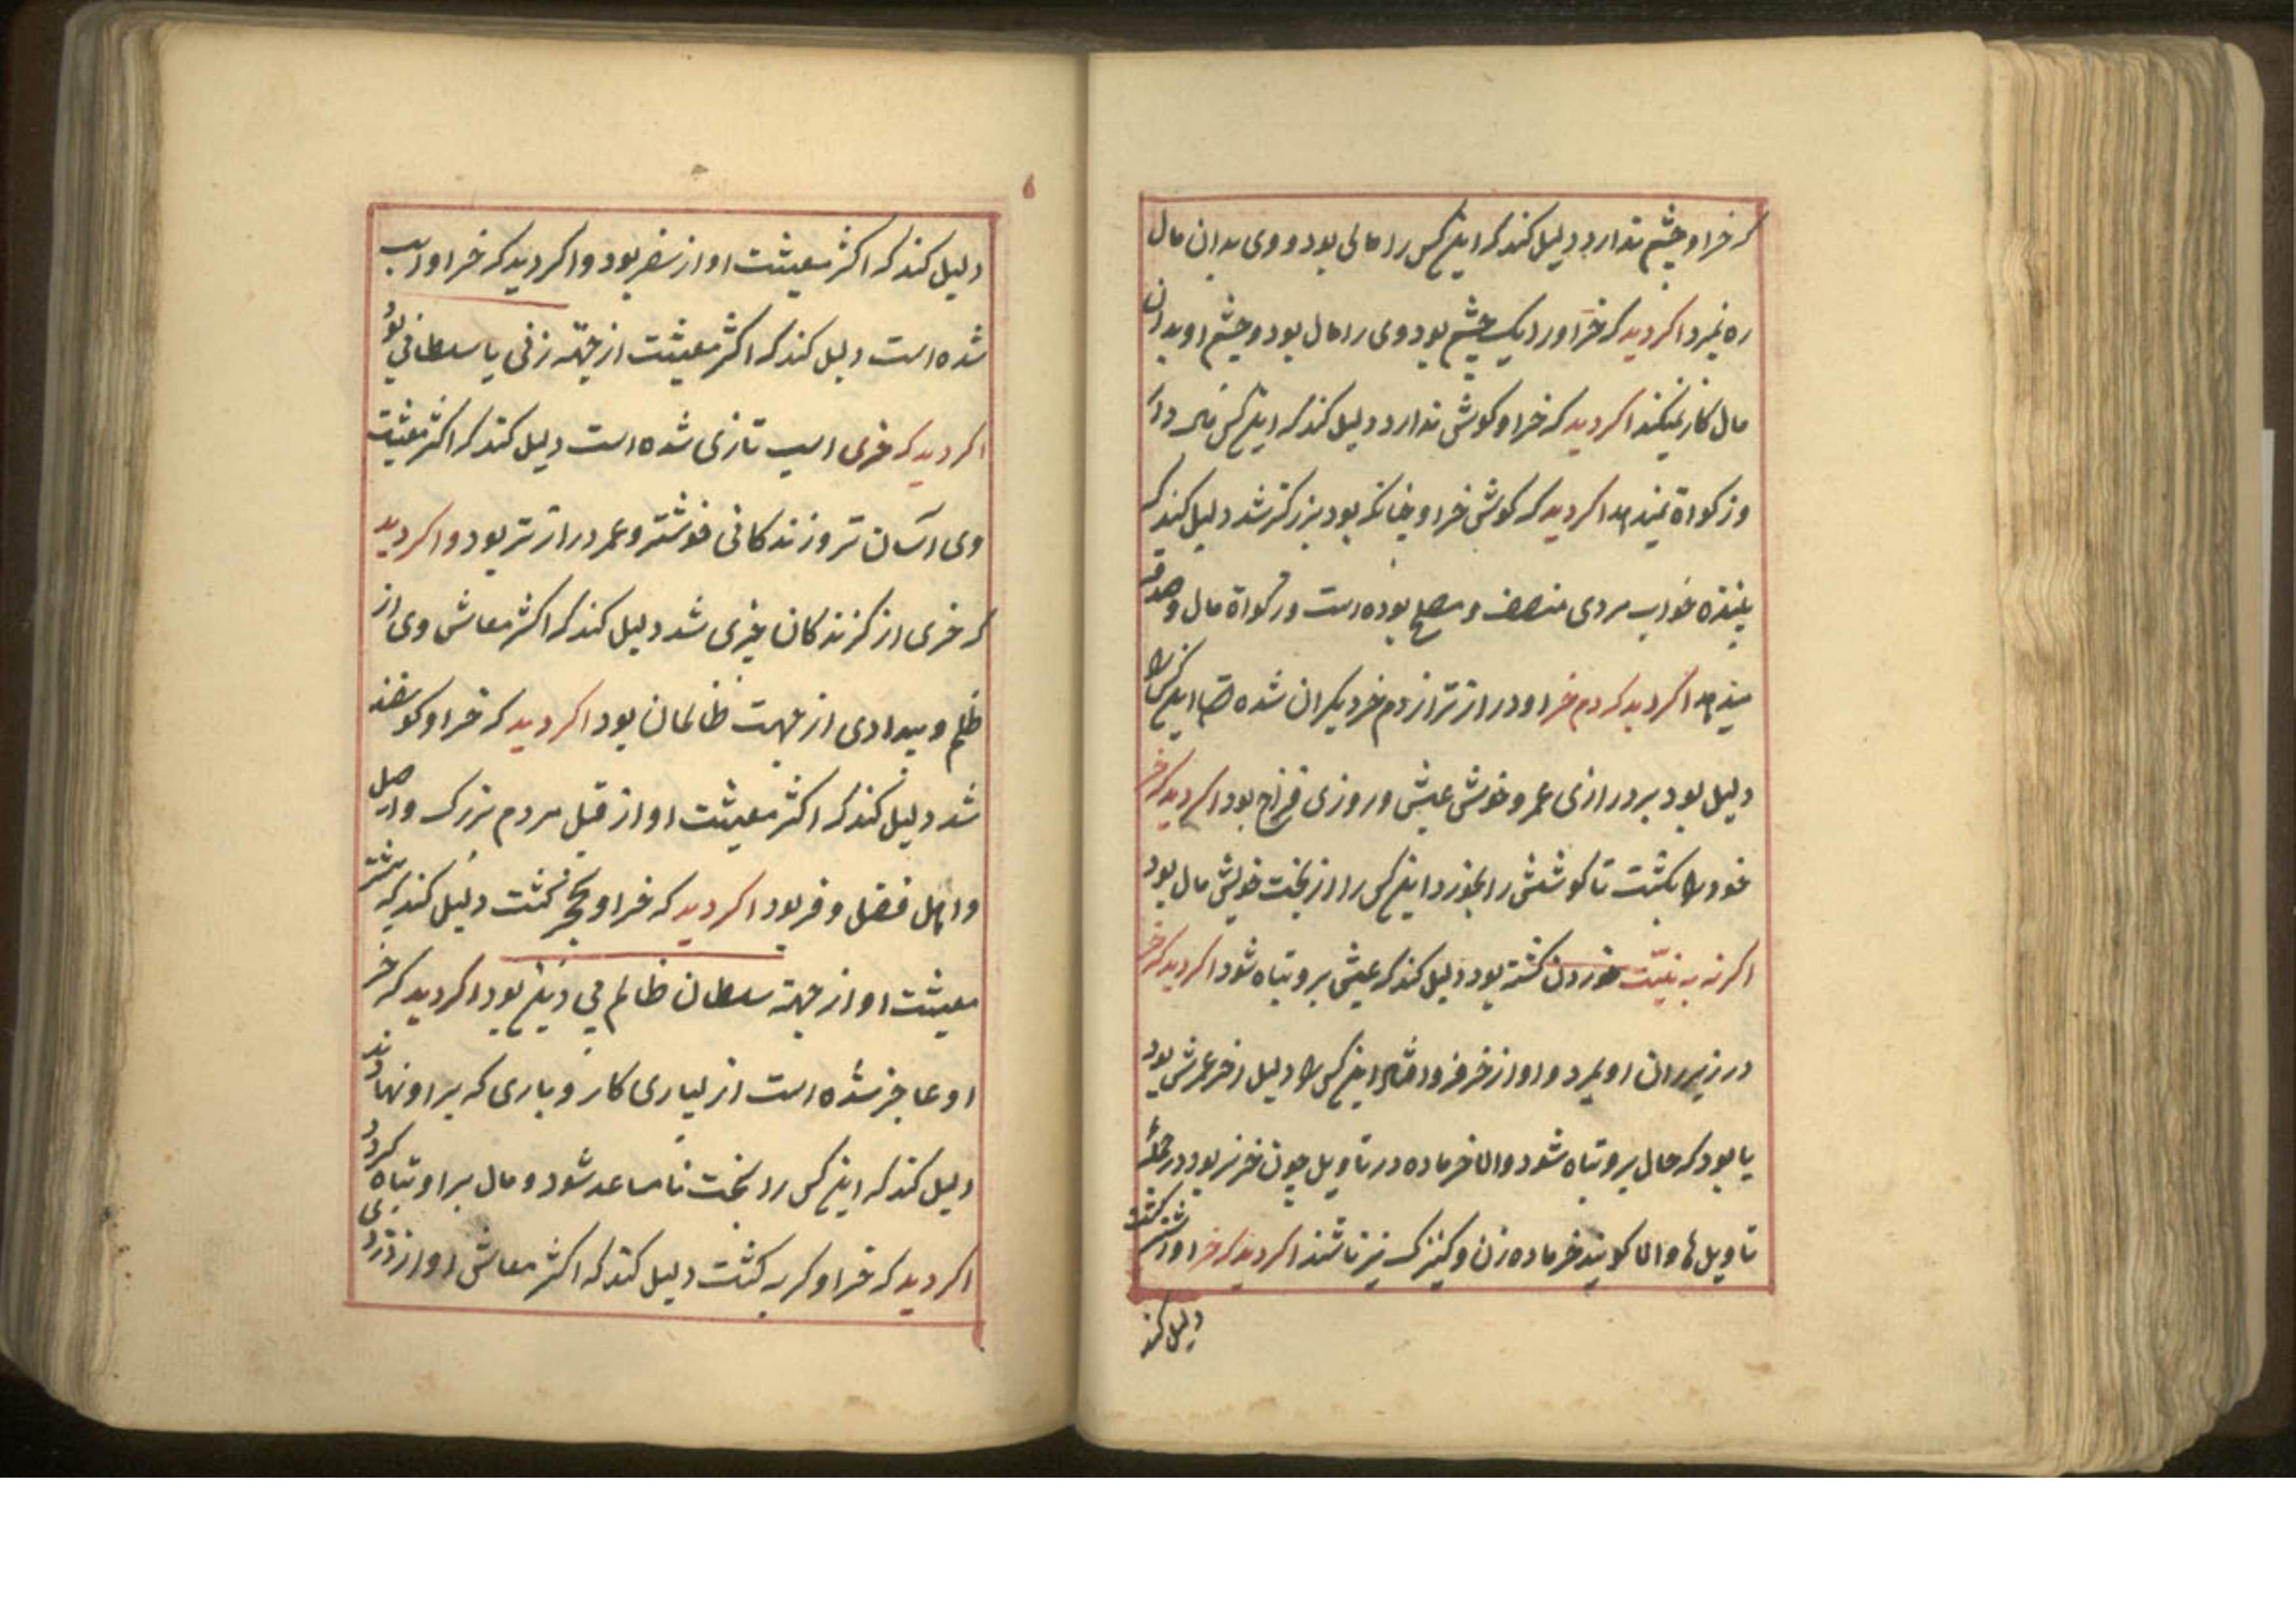 که خر او چشم ندارد دلیل کند که اینکس را مالی بود و وی بدان مال
ره نبرد اکر دید که خر او را یک چشم بود وی را مال بود و چشم او بدان
مال کار نمیکند اکر دید که خر او کوش ندارد دلیل کند که اینکس مال دارد
و زکواة نمیدهد اکر دید که کوش خر او چنانکه بود بزرکتر شد دلیل کند که
بیننده خواب مردی منصف و مصلح بوده است و زکواة مال و صدقه
میدهد اکر دید که دم خر او درازتر از دم خر دیکران شده است اینکس را
دلیل بود بر درازی عمر و خوشی عیش و روزی فراخ بود اکر دید که خر
خود را بکشت تا کوشتش را بخورد اینکس را از بخت خویش مال بود
اکر نه به نیّت خوردن کشته بود دلیل کند که عیش بر و تباه شود اکر دید که خر
در زیر ران او بمرد و او از خر فرود افتاد اینکس را دلیل اخر عمرش بود
یا بود که حال بر و تباه شود و اما خر ماده در تاویل چون خر نر بود در جمله
تاویل ها و اما کویند خر ماده زن و کنیزک نیز باشند اکر دید که خر او اشتر کشت
دلیل کند
دلیل کند که اکثر معیشت او از سفر بود و اکر دید که خر او اسب
شده است دلیل کند که اکثر معیشت از جهة زنی یا سلطانی بود
اکر دید که خری اسب تازی شده است دلیل کند که اکثر معیشت
وی آسان تر و زندکانی خوشتر و عمر درازتر بود و اکر دید
که خری از کزندکان چیزی شد دلیل کند که اکثر معاش وی از
ظلم و بیدادی از جهت ظالمان بود اکر دید که خر او کوسفند
شد دلیل کند که اکثر معیشت او از قبل مردم بزرک و اصل
و اهل فضل و فر بود اکر دید که خر او کشت دلیل کند که بیشتر
معیشت او از جهة سلطان ظالم بی دین بود اکر دید که خر
او عاجز شده است از بسیاری کار و باری که بر او نهادند
دلیل کند که اینکس را بخت نامساعد شود و مال بر او تباه کردد
اکر دید که خر او کربه کشت دلیل کند که اکثر معاش او از دزدی